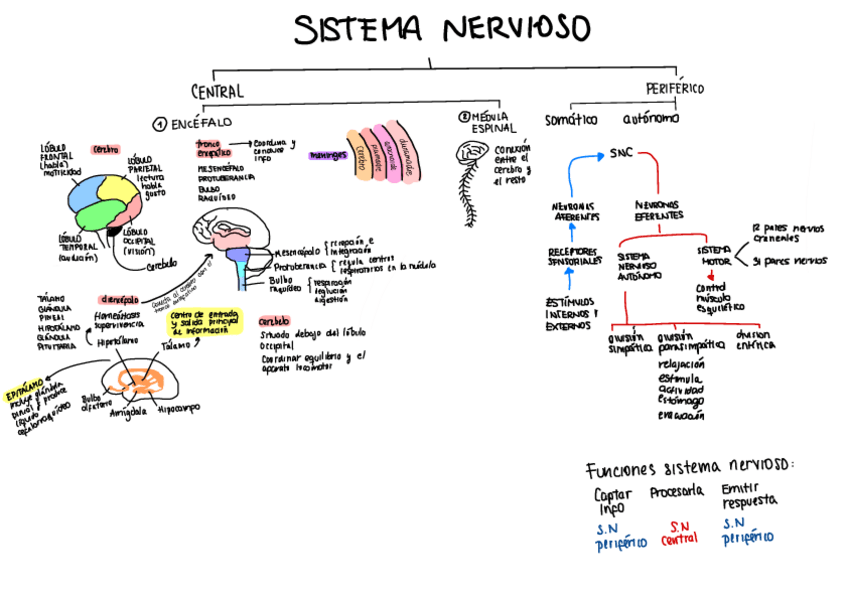 SISTEMA NERVIOSO
CENTRAL
PERIFÉRICO
1 ENCÉFALO
2 MÉDULA
ESPINAL
somático
autónomo
LÓBULO
FRONTAL
(habla)
motilidad
cerebro
LÓBULO
PARIETAL
lectura
habla
gusto
LÓBULO
TEMPORAL
(audición)
LÓBULO
OCCIPITAL
(VISIÓN)
cerebelo
tronco
encefálico
Coordina y
conduce
info
MESENCÉFALO
PROTUBERANCIA
BULBO
RAQUÍDEO
meninges
cerebro
piamadre
aracnoide
duramadre
conexión
entre el
cerebro y
el resto
Mesencéfalo
recepción e
integración
Protuberancia
regula centros
respiratorios en la médula
Bulbo
raquídeo
respiración
deglución
digestión
TÁLAMO
GLÁNDULA
PINEAL
HIPOTÁLAMO
GLÁNDULA
PITUITARIA
diencéfalo
Homeóstasis
supervivencia
Hipotálamo
Centro de entrada
y salida principal
de información
Tálamo
cerebelo
Situado debajo del lóbulo
occipital
Coordinar equilibrio y el
aparato locomotor
EPITÁLAMO
incluye glándula
pineal y produce
líquido
cefalorraquídeo
Bulbo
olfatorio
Amígdala
Hipocampo
SNC
NEURONAS
AFERENTES
NEURONAS
EFERENTES
RECEPTORES
SENSORIALES
ESTÍMULOS
INTERNOS Y
EXTERNOS
SISTEMA
NERVIOSO
AUTÓNOMO
SISTEMA
MOTOR
12 pares nervios
craneales
31 pares nervios
control
músculo
esquelético
división
simpática
división
parasimpática
division
entérica
relajación
estimula
actividad
estómago
evacuación
Funciones sistema nervioso:
Captar
info
Procesarla
Emitir
respuesta
S.N
periférico
S.N
central
S.N
periférico